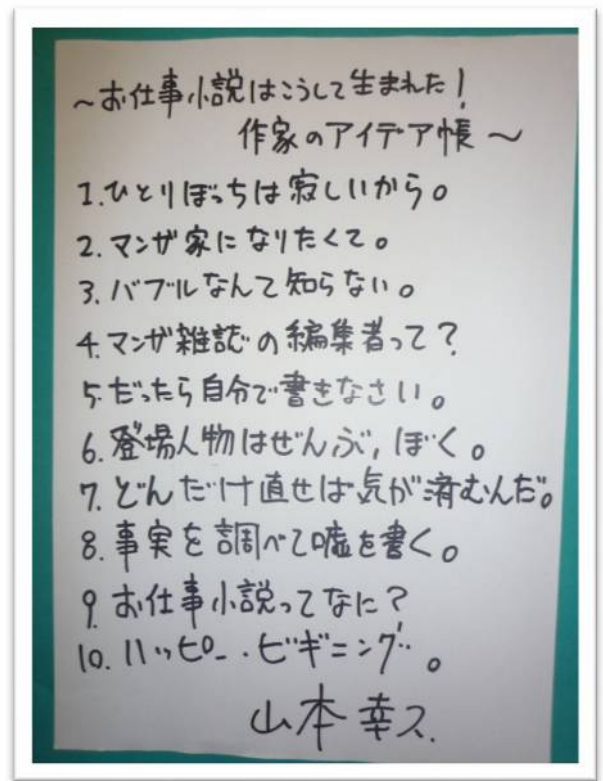 ～お仕事小説はこうして生まれた！
作家のアイデア帳～
1.ひとりぼっちは寂しいから。
2.マンガ家になりたくて。
3.バブルなんて知らない。
4.マンガ雑誌の編集者って？
5.だったら自分で書きなさい。
6.登場人物はぜんぶ,ぼく。
7.どんだけ直せば気が済むんだ。
8.事実を調べて嘘を書く。
9.お仕事小説ってなに？
10.ハッピー・ビギニング。
山本幸久